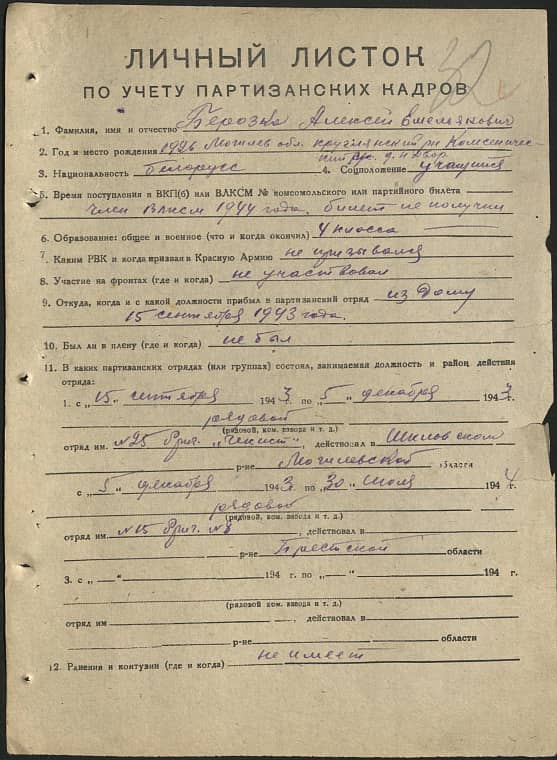 ЛИЧНЫЙ ЛИСТОК
ПО УЧЕТУ ПАРТИЗАНСКИХ КАДРОВ
32
1. Фамилия, имя и отчество Берозка Алексей
2. Год и место рождения 1926 Могилев обл. круглянский рн
д. н Двор
3. Национальность белорусс 4. Соцположение учащийся
5. Время поступления в ВКП(б) или ВЛКСМ № комсомольского или партийного билета
член ВЛКСМ 1944 года, билет не получил
6. Образование: общее и военное (что и когда окончил) 4 класса
7. Каким РВК и когда призван в Красную Армию не призывался
8. Участие на фронтах (где и когда) не участвовал
9. Откуда, когда и с какой должности прибыл в партизанский отряд из дому
15 сентября 1943 года.
10. Был ли в плену (где и когда) не был
11. В каких партизанских отрядах (или группах) состоял, занимаемая должность и район действия
отряда:
1. с „15“ сентября 1943 по „5“ декабря 1943 г.
рядовой
(рядовой, ком. взвода и т. д.)
отряд им. №25 Бриг. „Чекист“, действовал в Шкловском
р-не Могилевской области
с „5“ декабря 1943 г. по „30“ июля 1944 г.
рядовой
(рядовой, ком. взвода и т. д.)
отряд им. №15 Бриг. №8, действовал в
р-не Брестской области
3. с „ “ 194 г. по „ “ 194 г.
(рядовой, ком. взвода и т. д.)
отряд им , действовал в
р-не области
12. Ранения и контузии (где и когда) не имеет